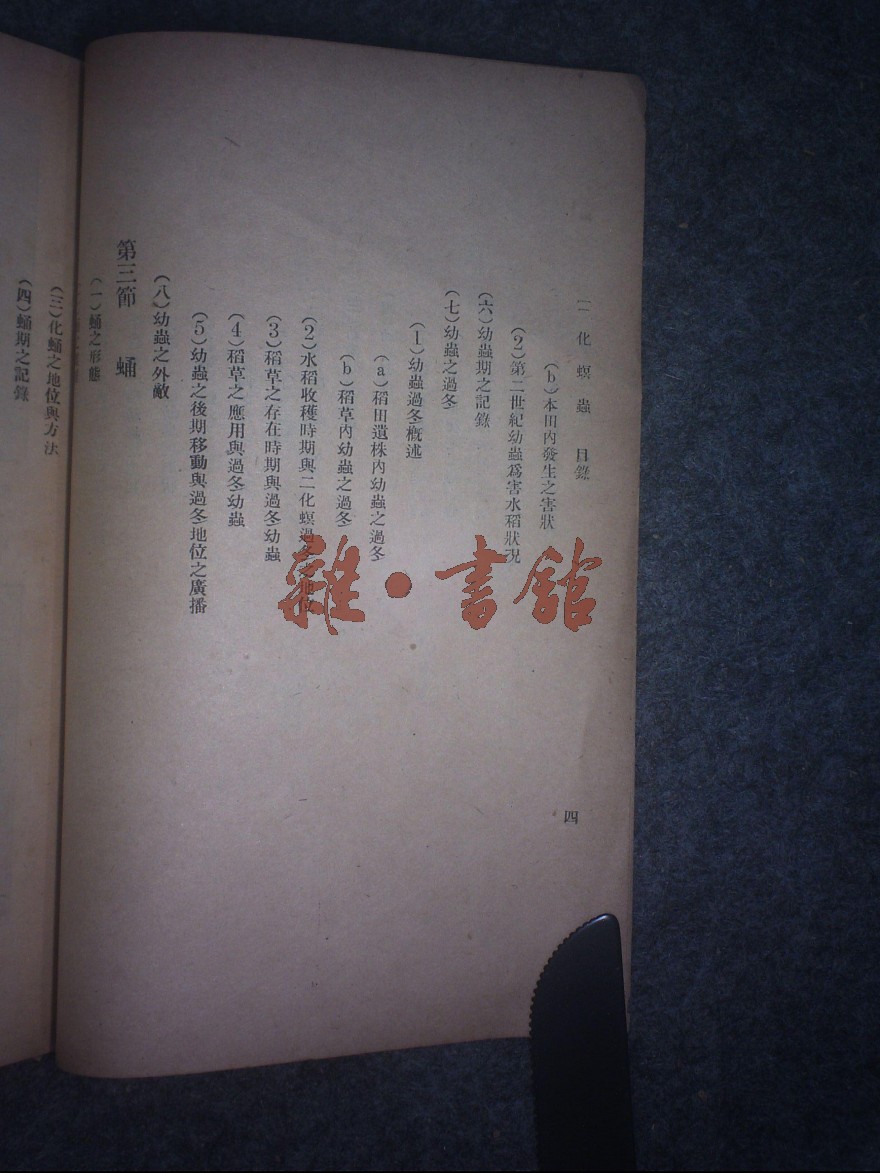 二化螟蟲 目錄
四
(b)本田內發生之害狀
(2)第二世紀幼蟲爲害水稻狀況
(六)幼蟲期之記錄
(七)幼蟲之過冬
(1)幼蟲過冬概述
(a)稻田遺株內幼蟲之過冬
(b)稻草內幼蟲之過冬
(2)水稻收穫時期與二化螟過冬之地位
(3)稻草之存在時期與過冬幼蟲
(4)稻草之應用與過冬幼蟲
(5)幼蟲之後期移動與過冬地位之廣播
(八)幼蟲之外敵
第三節 蛹
(一)蛹之形態
(三)化蛹之地位與方法
(四)蛹期之記錄
雜·書館